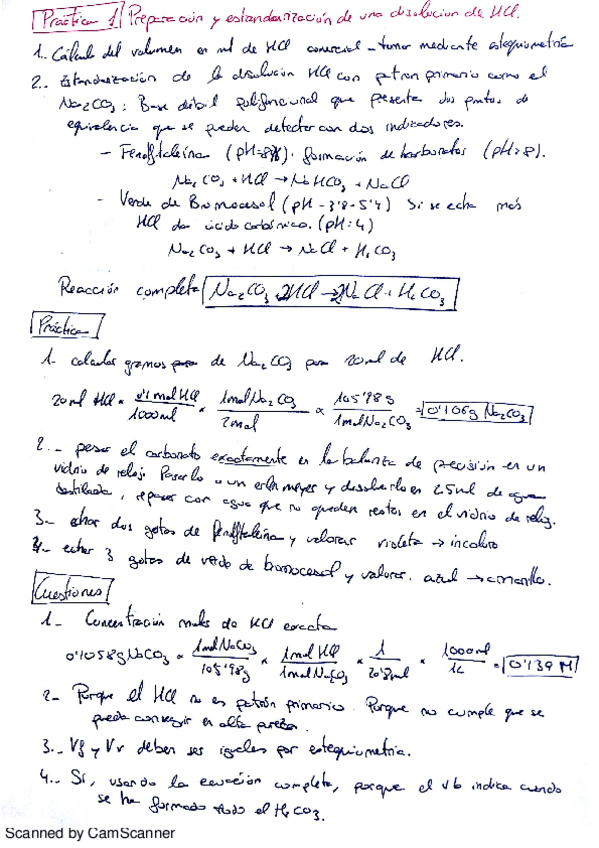 Práctica 1 Preparación y estandarización de una disolución de HCl.
1.- Cálculo del volumen en ml de HCl comercial - tomar mediante estequiometría
2.- Estandarización de la disolución HCl con patrón primario como el
Na2CO3: Base débil polifuncional que presenta dos puntos de
equivalencia que se pueden detectar con dos indicadores.
- Fenolftaleína (pH=8). formación de carbonatos (pH>8).
Na2CO3 + HCl → NaHCO3 + NaCl
- Verde de Bromocresol (pH - 3'8-5'4) Si se echa más
HCl da ácido carbónico. (pH=4)
Na2CO3 + HCl → NaCl + H2CO3
Reacción completa Na2CO3 + 2HCl → 2NaCl + H2CO3
Práctica
1- calcular gramos de Na2CO3 para 20ml de HCl.
20 ml HCl × 0'1 mol HCl / 1000ml × 1mol Na2CO3 / 2mol × 105'98 g / 1mol Na2CO3 = 0'106g Na2CO3
2.- pesar el carbonato exactamente en la balanza de precisión en un
vidrio de reloj. Pasarlo a un erlenmeyer y disolverlo en 25ml de agua
destilada, repasar con agua que no queden restos en el vidrio de reloj.
3.- echar dos gotas de fenolftaleína y valorar violeta → incoloro
4.- echar 3 gotas de verde de bromocresol y valorar. azul → amarillo.
Cuestiones
1- Concentración molar de HCl exacta
0'1058g NaCO3 × 1mol NaCO3 / 105'98g × 1mol HCl / 1mol NaCO3 × 1 / 20'8ml × 1000ml / 1L = 0'139 M
2- Porque el HCl no es patrón primario. Porque no cumple que se
pueda conseguir en alta pureza.
3.- Vf y Vv deben ser iguales por estequiometría.
4.- Sí, usando la ecuación completa, porque el vb indica cuando
se ha formado todo el H2CO3.
Scanned by CamScanner